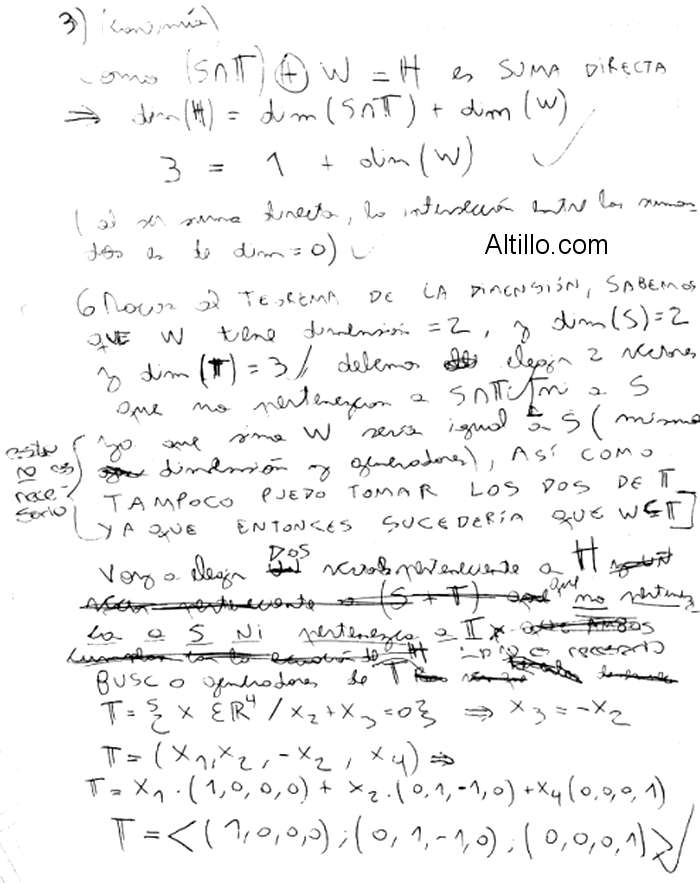 3) (
como (S∩T) ⊕ W = H es SUMA DIRECTA
⇒ dim(H) = dim(S∩T) + dim(W)
3 = 1 + dim(W)
(al ser suma directa, la intersección entre los suman-
dos es de dim=0)
Altillo.com
Gracias al TEOREMA DE LA DIMENSIÓN, SABEMOS
QUE W tiene dimensión = 2, y dim(S)=2
y dim(T) = 3 // debemos elegir 2 vectores
que no pertenezcan a S∩T [ni a S
ya que sino W sería igual a S (misma
dimensión y generadores), ASÍ COMO
TAMPOCO PUEDO TOMAR LOS DOS DE T
YA QUE ENTONCES SUCEDERÍA QUE W⊆T]
esto
no es
nece-
sario
Voy a elegir DOS perteneciente a H
(S + T) que no pertenez-
ca a S Ni pertenezca a T
no es necesario
BUSCO generadores de T
T = { X ∈ ℝ⁴ / X₂ + X₃ = 0} ⇒ X₃ = -X₂
T = (X₁, X₂, -X₂, X₄) ⇒
T = X₁ · (1,0,0,0) + X₂ · (0,1,-1,0) + X₄ (0,0,0,1)
T = <(1,0,0,0) ; (0,1,-1,0) ; (0,0,0,1)>